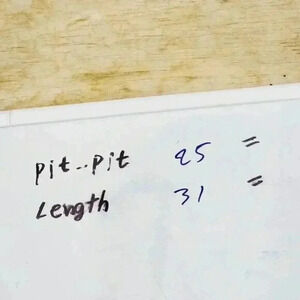 pit..pit 25 =
Length 31 =